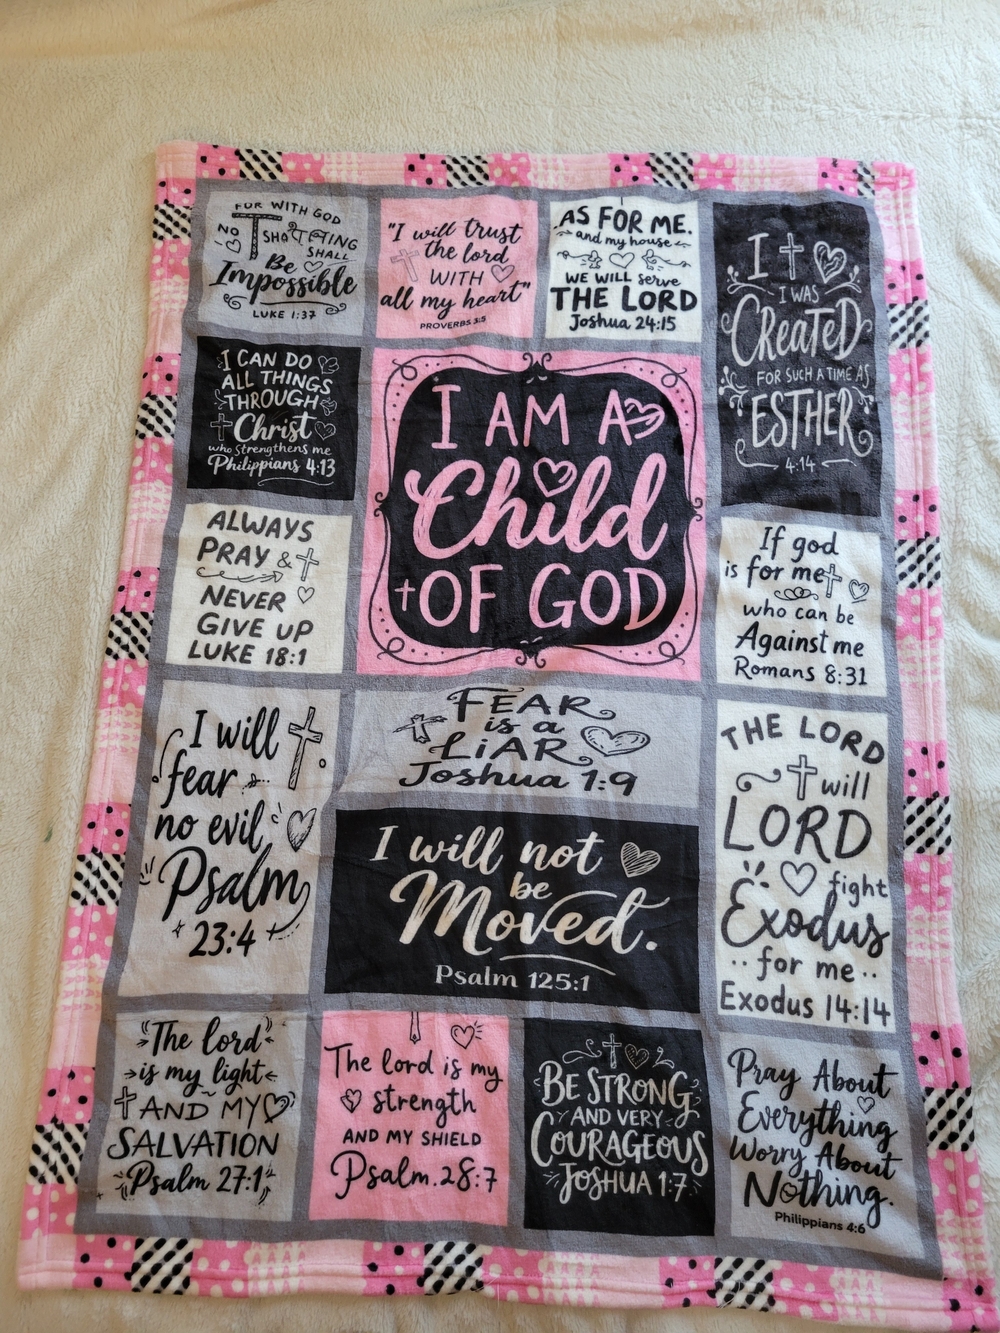 FOR WITH GOD
NO
SHALL
Be
Impossible
LUKE 1:37
"I will trust
the lord
WITH
all my heart"
PROVERBS 3:5
AS FOR ME.
and my house
WE WILL serve
THE LORD
Joshua 24:15
I
I WAS
CREATED
FOR SUCH A TIME AS
ESTHER
4:14
I CAN DO
ALL THINGS
THROUGH
Christ
who Strengthens me
Philippians 4:13
I AM A
Child
OF GOD
ALWAYS
PRAY &
NEVER
GIVE UP
LUKE 18:1
If god
is for me
who can be
Against me
Romans 8:31
I will
fear
no evil
Psalm
23:4
FEAR
is a
LiAR
Joshua 1:9
THE LORD
will
LORD
fight
Exodus
for me
Exodus 14:14
I will not
be
Moved.
Psalm 125:1
The lord
is my light
AND MY
SALVATION
Psalm 27:1
The lord is my
strength
AND MY SHIELD
Psalm.28:7
BE STRONG
AND VERY
COURAGEOUS
JOSHUA 1:7
Pray About
Everything
Worry About
Nothing.
Philippians 4:6